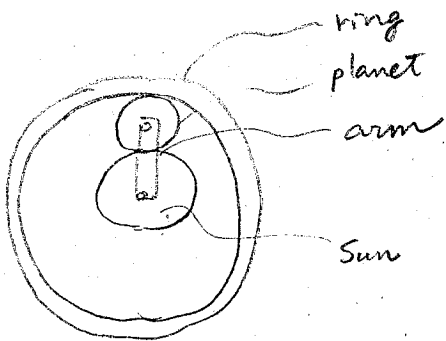 ring
planet
arm
Sun